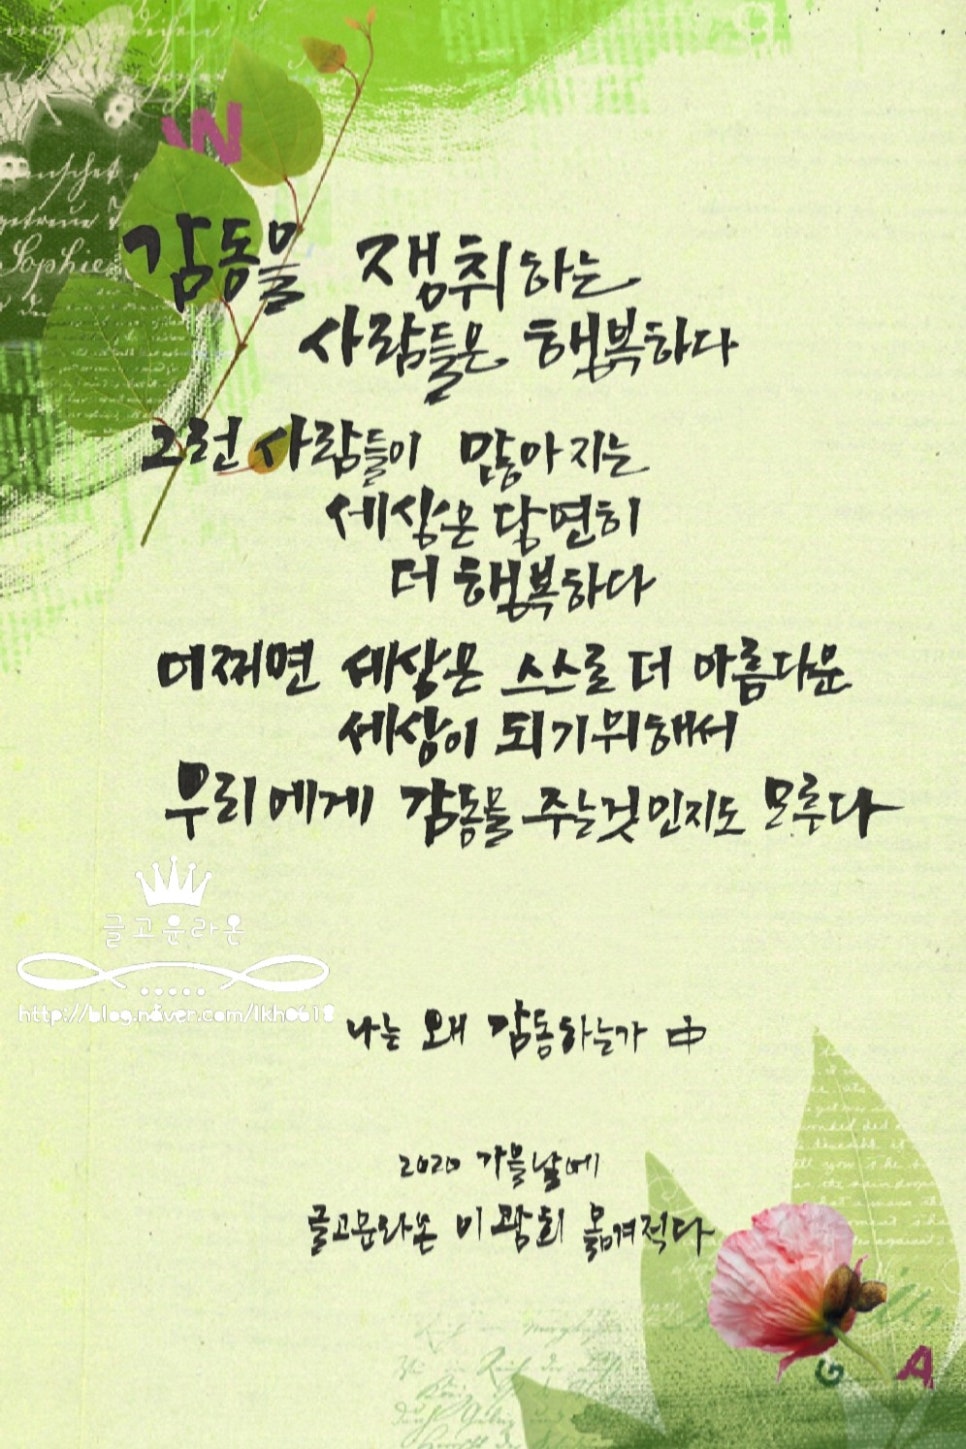 감동을 쟁취하는
사람들은 행복하다
그런 사람들이 많아지는
세상은 당연히
더 행복하다
어쩌면 세상은 스스로 더 아름다운
세상이 되기위해서
우리에게 감동을 주는것인지도 모루다
글고운라온
http://blog.naver.com/lkh0618
나는 왜 감동하는가 中
2020 가을날에
글고운라온 이광희 옮겨적다
W
Sophie
G A